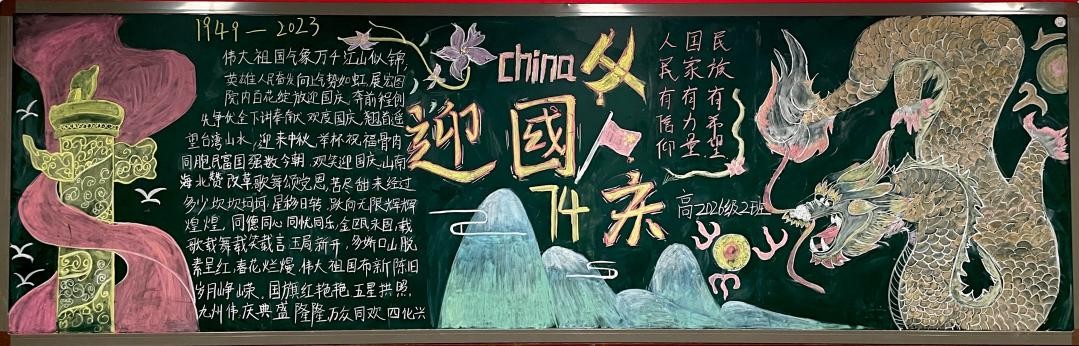 1949-2023
伟大祖国气象万千江山似锦,
英雄人民奋发向上气势如虹.展宏图
院内百花绽放迎国庆.奔前程创
全下讲奉献.欢度国庆.翘首遥
望台湾山水,迎来中秋,举杯祝福骨肉
同胞民富国强数今朝.欢笑迎国庆.山南
海北赞改革歌舞颂党恩.苦尽甜来经过
多少坎坎坷坷.星移日转.跃向无限辉辉
煌煌.同德同心同忧同乐.金瓯永固.载
歌载舞载笑载言.玉局新开,多娇口山脱
素呈红.春花烂熳.伟大祖国布新陈旧
岁月峥嵘.国旗红艳艳.五星拱照.
九州伟庆典盛隆隆万众同欢.四化兴
china
迎國庆
74
人民有信仰
国家有力量
民族有希望
高2026级2班